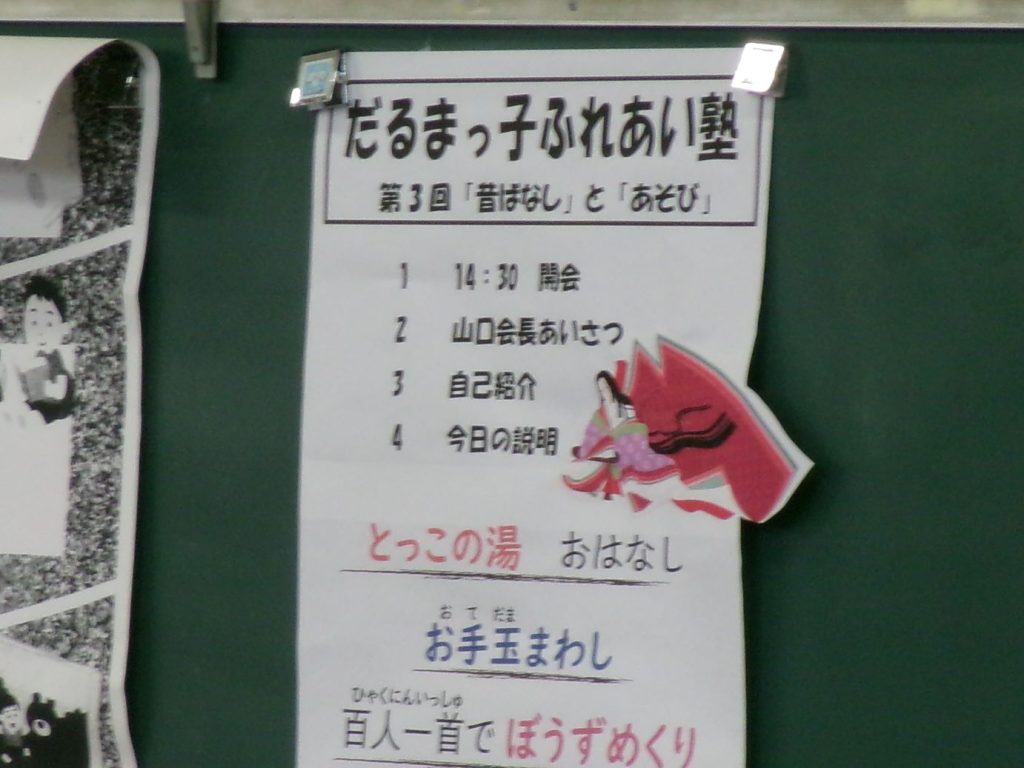 だるまっ子ふれあい塾
第3回「昔ばなし」と「あそび」
1 14:30 開会
2 山口会長あいさつ
3 自己紹介
4 今日の説明
とっこの湯 おはなし
おてだま
お手玉まわし
ひゃくにんいっしゅ
百人一首でぼうずめくり